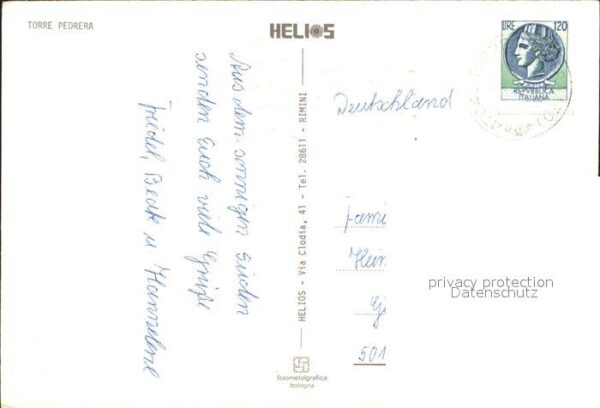 TORRE PEDRERA
HELIOS
LIRE 120
REPVBBLICA
ITALIANA
Aus dem sonnigen Süden
senden Euch viele Grüße
Friedel, Beate u Hannelore
Deutschland
Fami
Hein
501
HELIOS - Via Clodia, 41 - Tel. 28611 - RIMINI
fotometalgrafica
bologna
privacy protection
Datenschutz